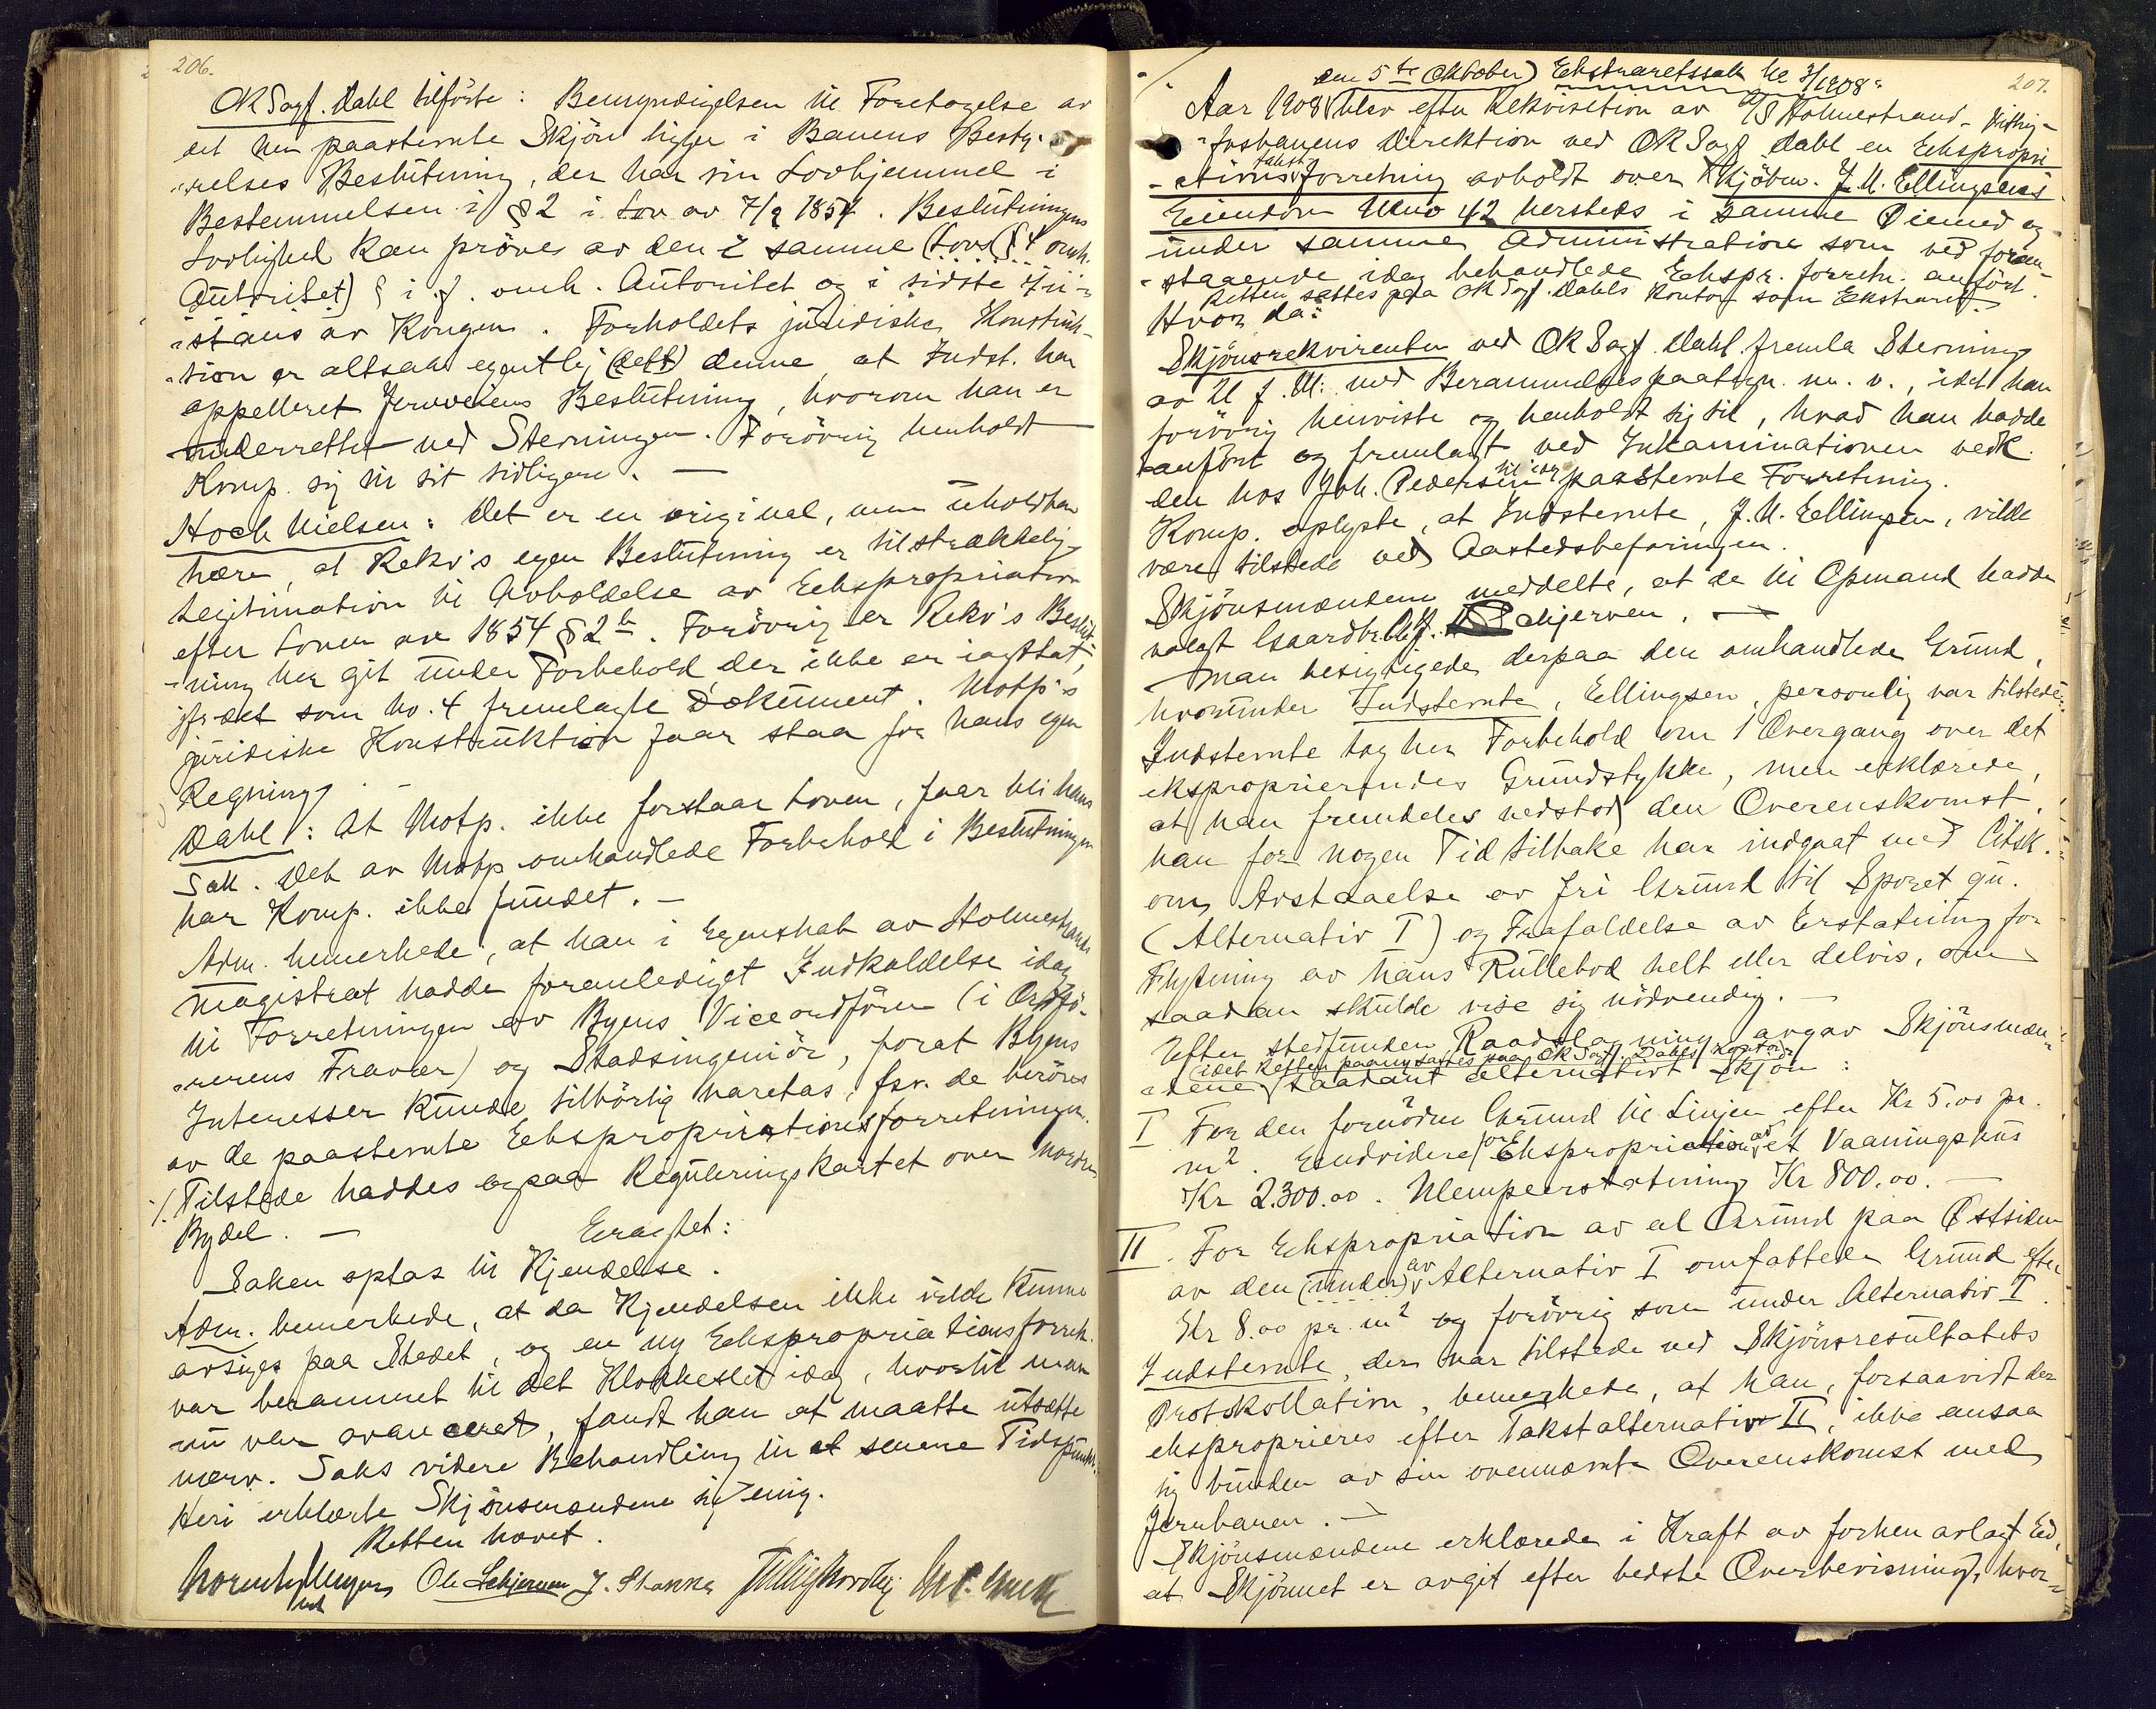 206.
OKSagf. Dahl tilförte: Bemyndigelsen til Foretagelse av
det her paastevnte Skjön ligger i Banens Besty-
relses Beslutning, der har sin Lovhjemmel i
Bestemmelsen i § 2 i Lov av 7/9 1854. Beslutningens
Lovlighed kan pröves av den i samme (Lovs § 4 omh.
Autoritet) § i f. omh. Autoritet og i sidste In-
stans av Kongen. Forholdets juridiske Konstruk-
tion er altsaa egentlig (dett) denne, at Indst. har
appelleret Jernveiens Beslutning, hvorom han er
underrettet ved Stevningen. Forövrig henholdt
Komp. sig til sit tidligere. —
Hoch Nielsen: Det er en original, men uholdbar
Lære, at Rekv's egen Beslutning er tilstrækkelig
Legitimation til Avholdelse av Ekspropriation
efter Loven av 1854 § 2b. Forövrig er Rekv's Beslut-
ning her git under Forbehold der ikke er iagttat,
jfr. det som No. 4 fremlagte Dokument. Motp's
juridiske Konstruktion faar staa for hans egen
Regning. —
Dahl: At Motp. ikke forstaar Loven, faar bli hans
Sak. Det av Motp omhandlede Forbehold i Beslutningen
har Komp. ikke fundet. —
Adm. bemerkede, at han i Egenskab av Holmestrands
Magistrat hadde foranlediget Indkaldelse idag
til Forretningen av Byens Viceordförer (i Ordfö-
rerens Fravær) og Stadsingeniör, forat Byens
Interesser kunde tilbörlig varetas, fsv. de beröres
av de paastevnte Ekspropriationsforretninger.
./. Tilstede haddes ogsaa Reguleringskartet over nordre
Bydel. —
Eragtet:
Saken optas til Kjendelse.
Adm. bemerkede, at da Kjendelsen ikke vilde kunne
avsiges paa Stedet, og en ny Ekspropriationsforretn.
var berammet til det Klokkeslet idag, hvortil man
nu var avanceret, fandt han at maatte utsætte
nærv. Saks videre Behandling til et senere Tidspunkt.
Heri erklærte Skjönsmændene sig enig.
Retten hævet.
Ole Schjerven J. Hanks
207.
den 5te Oktober) Ekstraretssak No 3/1908.
Aar 1908 blev efter Rekvisition av A/S Holmestrand-Vittingfosbanens
Direktion ved OKSagf Dahl en Ekspropri-
takst
ationsforretning avholdt over Kjöbm. J. M. Ellingsens
Eiendom Mno 42 hersteds i samme Öiemed og
under samme Administration som ved foran-
staaende idag behandlede Ekspr. forretn. anfört.
Retten sattes paa OKSagf. Dahls Kontor som Ekstraret.
Hvor da:
Skjönsrekvirenten ved OKSagf. Dahl fremla Stevning
av med Berammelsespaategn. m. v., idet han
forövrig henviste og henholdt sig til, hvad han hadde
anfört og fremlagt ved Inkaminationen vedk.
til idag
den hos Joh. Pedersen paastevnte Forretning.
Komp. oplyste, at Indstevnte, J. M. Ellingsen, vilde
være tilstede ved Aastedsbefaringen.
Skjönsmændene meddelte, at de til Opmand hadde
valgt Gaardbr. Schjerven. —
Man besigtigede derpaa den omhandlede Grund,
hvorunder Indstevnte, Ellingsen, personlig var tilstede.
Indstevnte tog her Forbehold om 1 Overgang over det
eksproprierendes Grundstykke, men erklærede,
at han fremdeles vedstod den Overenskomst,
han for nogen Tid tilbake har indgaat med Citsk.
om Avstaaelse av fri Grund til Sporet gn.
(Alternativ I) og Frafaldelse av Erstatning for
Flytning av hans Rullebod helt eller delvis, om
saadan skulde vise sig nödvendig. —
Efter stedfunden Raadslagning avgav Skjönsmæn-
(idet Retten paany sattes paa OKSagf. Dahls Kontor
dene saadant alternativt Skjön:
I For den fornödne Grund til Linjen efter Kr 5.00 pr.
m2. Endvidere for Ekspropriation av et Vaaningshus
Kr 2.300.00. Ulempeerstatning Kr 800.00. —
II. For Ekspropriation av al Grund paa Östsiden
av den (under) av Alternativ I omfattede Grund efter
Kr 8.00 pr. m2 og forövrig som under Alternativ I.
Indstevnte, der var tilstede ved Skjönsresultatets
Protokollation, bemerkede, at han, forsaavidt der
eksproprieres efter Takstalternativ II, ikke ansaa
sig bunden av sin ovennævnte Overenskomst med
Jernbanen. —
Skjönsmændene erklærede i Kraft av forhen avlagt Ed,
at Skjönnet er avgit efter bedste Overbevisning, hvor-